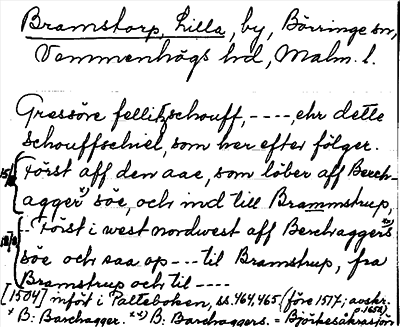 Bramstorp, Lilla, by, Börringe sn,
Vemmenhögs hd, Malm. l.
Gressöre fellitzschouff, ----, ehr dette
schouffschiel, som her efter fölger.
Först aff den aae, som löber aff Berch-
agger*) söe, och ind till Brammstrup,
-- Först i west nordwest aff Berchaggers**)
söe och saa op --- til Bramstrup, fra
Bramstrup och til ----
[1504] infört i Palteboken, ss. 464, 465 (före 1517; avskr. p. 1650)
*) B: Barchagger. **) B: Barchaggers. = Björkesåkrasjön